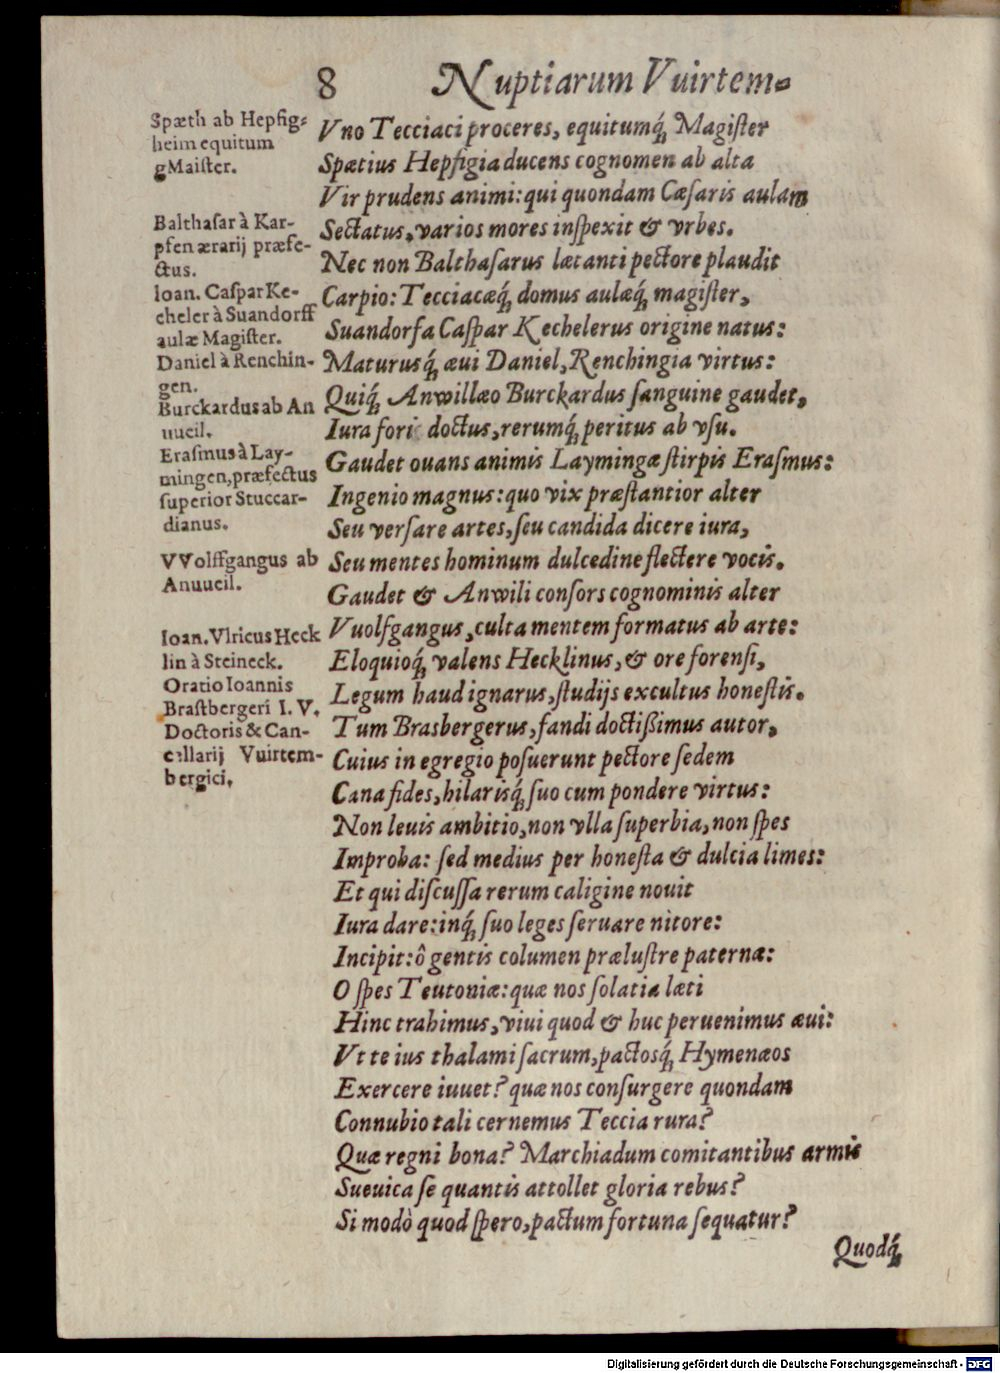 8 Nuptiarum Vuirtem-
Spæth ab Hepfig-
heim equitum
gMaister.
Balthasar à Kar-
pfen ærarij præfe-
ctus.
Ioan. Caspar Ke-
cheler à Suandorff
aulæ Magister.
Daniel à Renchin-
gen.
Burckardus ab An
uueil.
Erasmus à Lay-
mingen, præfectus
superior Stuccar-
dianus.
VVolffgangus ab
Anuueil.
Ioan. Vlricus Heck
lin à Steineck.
Oratio Ioannis
Brastbergeri I. V.
Doctoris & Can-
cellarij Vuirtem-
bergici.
Vno Tecciaci proceres, equitumq́; Magister
Spætius Hepfigia ducens cognomen ab alta
Vir prudens animi: qui quondam Cæsaris aulam
Sectatus, varios mores inspexit & vrbes.
Nec non Balthasarus lætanti pectore plaudit
Carpio: Tecciacæq́; domus aulæq́; magister,
Suandorfa Caspar Kechelerus origine natus:
Maturusq́; æui Daniel, Renchingia virtus:
Quiq́; Anwillæo Burckardus sanguine gaudet,
Iura fori doctus, rerumq́; peritus ab vsu.
Gaudet ouans animis Laymingæ stirpis Erasmus:
Ingenio magnus: quo vix præstantior alter
Seu versare artes, seu candida dicere iura,
Seu mentes hominum dulcedine flectere vocis.
Gaudet & Anwili consors cognominis alter
Vuolfgangus, culta mentem formatus ab arte:
Eloquioq́; valens Hecklinus, & ore forensi,
Legum haud ignarus, studijs excultus honestis.
Tum Brasbergerus, fandi doctißimus autor,
Cuius in egregio posuerunt pectore sedem
Cana fides, hilarisq́; suo cum pondere virtus:
Non leuis ambitio, non vlla superbia, non spes
Improba: sed medius per honesta & dulcia limes:
Et qui discussa rerum caligine nouit
Iura dare: inq́; suo leges seruare nitore:
Incipit: ô gentis columen prælustre paternæ:
O spes Teutoniæ: quæ nos solatia læti
Hinc trahimus, viui quod & huc peruenimus æui:
Vt te ius thalami sacrum, pactosq́; Hymenæos
Exercere iuuet? quæ nos consurgere quondam
Connubio tali cernemus Teccia rura?
Quæ regni bona? Marchiadum comitantibus armis
Sueuica se quantis attollet gloria rebus?
Si modò quod spero, pactum fortuna sequatur?
Quodq́;
Digitalisierung gefördert durch die Deutsche Forschungsgemeinschaft - DFG